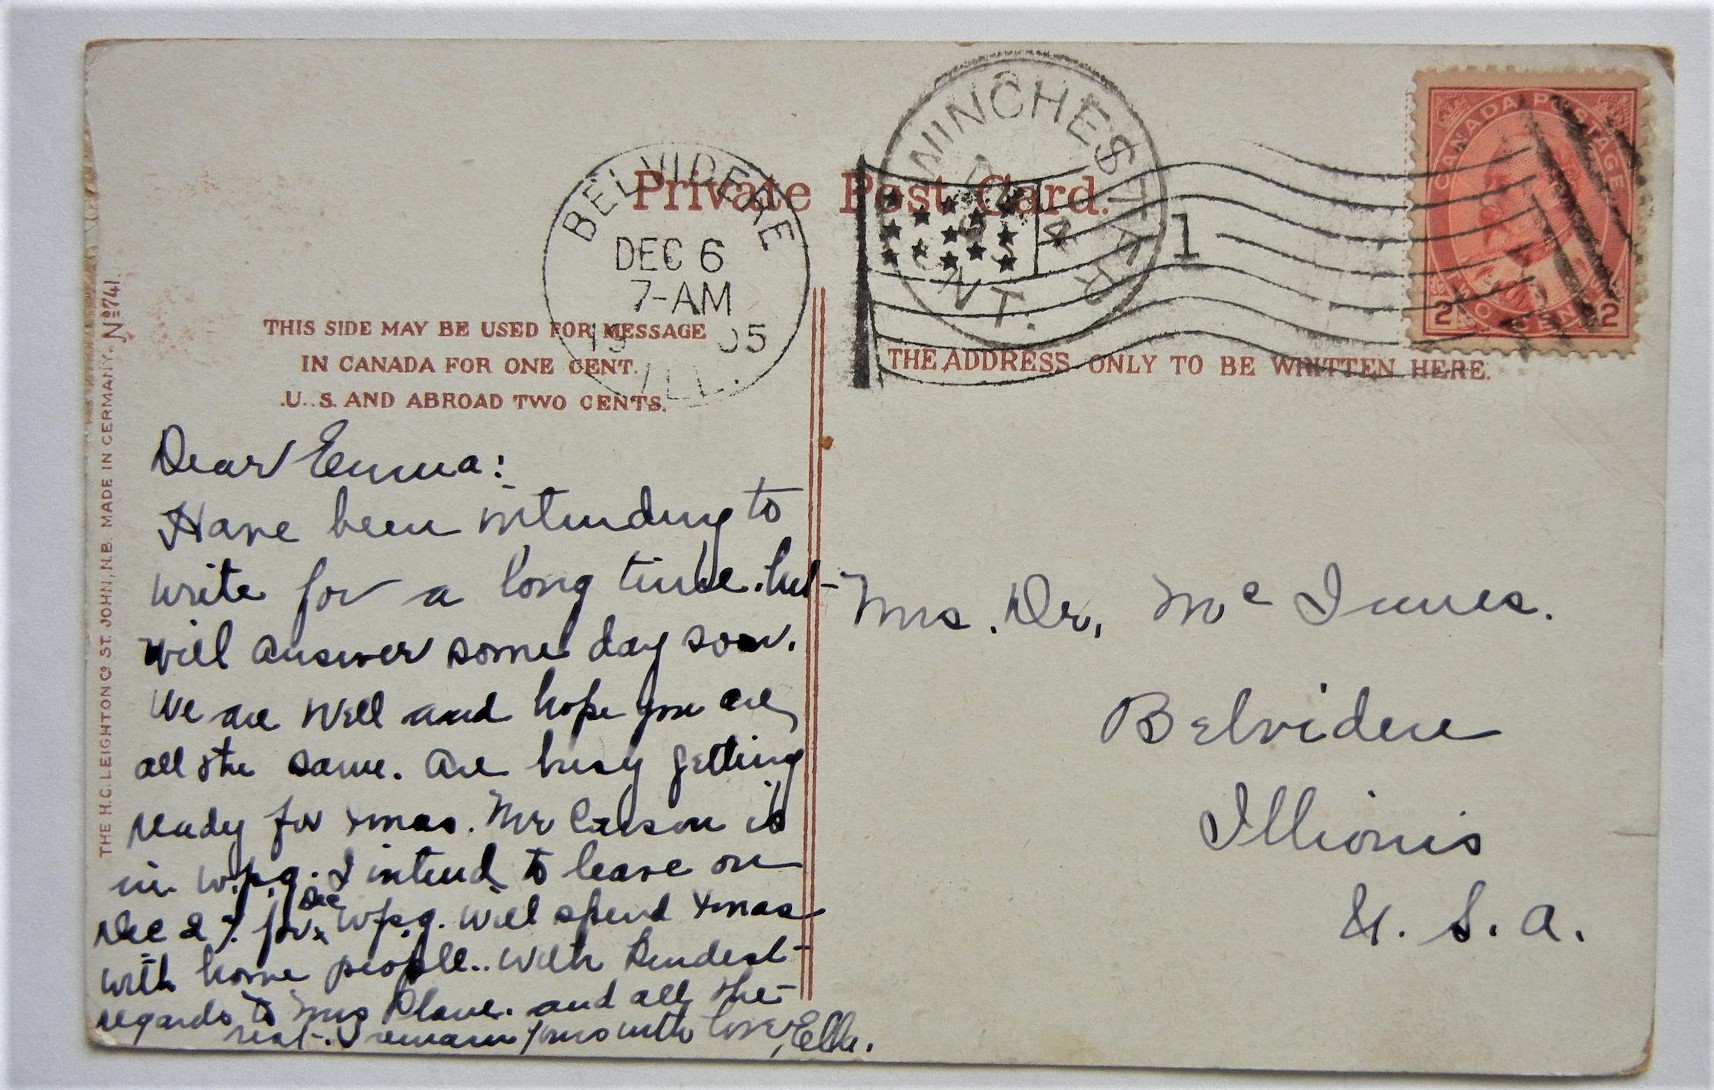 BELVIDERE
DEC 6
7-AM
19 05
ILL.
WINCHESTER
ONT.
1
CANADA POSTAGE
2 TWO CENTS 2
Private Post Card.
THIS SIDE MAY BE USED FOR MESSAGE
IN CANADA FOR ONE CENT.
U.S. AND ABROAD TWO CENTS.
THE ADDRESS ONLY TO BE WRITTEN HERE.
THE H.C. LEIGHTON Co ST. JOHN, N.B. MADE IN GERMANY. No 741.
Dear Emma:
Have been intending to
write for a long time. but
will answer some day soon.
We are well and hope you are
all the same. Are busy getting
ready for Xmas. Mr Carson is
in Wpg. I intend to leave on
Dec 27. for Wpg. Will spend Xmas
with home people. With Kindest
regards to Mrs and all the
rest. I remain yours with love, Ella.
Mrs. Dr. Mc Innes.
Belvidere
Illionis
U. S. A.